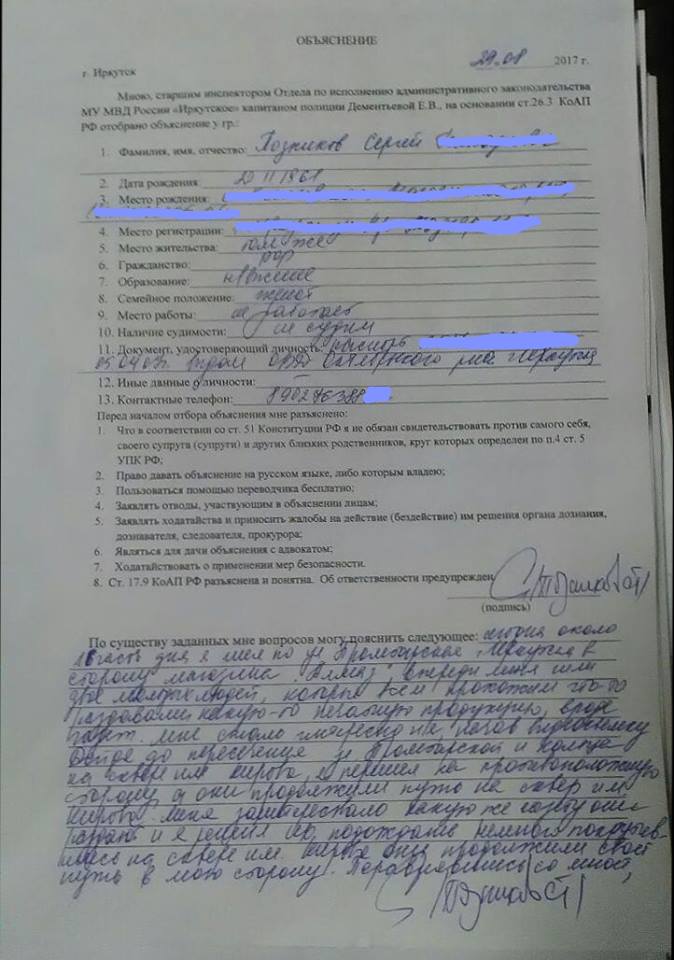 ОБЪЯСНЕНИЕ
г. Иркутск 29.08 2017 г.
Мною, старшим инспектором Отдела по исполнению административного законодательства
МУ МВД России «Иркутское» капитаном полиции Дементьевой Е.В., на основании ст.26.3 КоАП
РФ отобрано объяснение у гр.:
1. Фамилия, имя, отчество: Позников Сергей
2. Дата рождения: 20 11 1961
3. Место рождения:
4. Место регистрации:
5. Место жительства: там же
6. Гражданство: РФ
7. Образование:
8. Семейное положение: женат
9. Место работы: не работает
10. Наличие судимости: не судим
11. Документ, удостоверяющий личность: паспорт
05.04.03. Выдан ОВД Октябрьского р-на г Иркутска
12. Иные данные о личности:
13. Контактные телефон:
Перед началом отбора объяснения мне разъяснено:
1. Что в соответствии со ст. 51 Конституции РФ я не обязан свидетельствовать против самого себя,
своего супруга (супруги) и других близких родственников, круг которых определен по п.4 ст. 5
УПК РФ;
2. Право давать объяснение на русском языке, либо которым владею;
3. Пользоваться помощью переводчика бесплатно;
4. Заявлять отводы, участвующим в объяснении лицам;
5. Заявлять ходатайства и приносить жалобы на действие (бездействие) им решения органа дознания,
дознавателя, следователя, прокурора;
6. Являться для дачи объяснения с адвокатом;
7. Ходатайствовать о применении мер безопасности.
8. Ст. 17.9 КоАП РФ разъяснена и понятна. Об ответственности предупрежден
(подпись)
По существу заданных мне вопросов могу пояснить следующее: сегодня около
16 часов дня я шел по ул Пролетарская г Иркутска в
сторону магазина "Алмаз" впереди меня шли
двое молодых людей, которые всем прохожим что-то
раздавали какую-то печатную продукцию, вроде
газет. мне стало интересно и я, начав видеосъемку
дойдя до пересечения ул Пролетарской и кольца
на сквере им Кирова, я перешел на противоположную
сторону, а они продолжили путь на сквер им
Кирова. меня заинтересовало какую же газету они
раздают и я решил их подождать немного покрутив-
шись на сквере им. Кирова они продолжили свой
путь в мою сторону. Поравнявшись со мной,